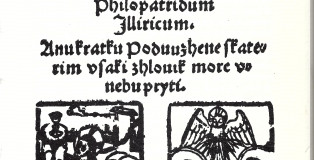 Philopatridum
Illiricum.
Anu kratku Poduuzhene skate-
rim vsaki zhlouik more vo
nebu pryti.